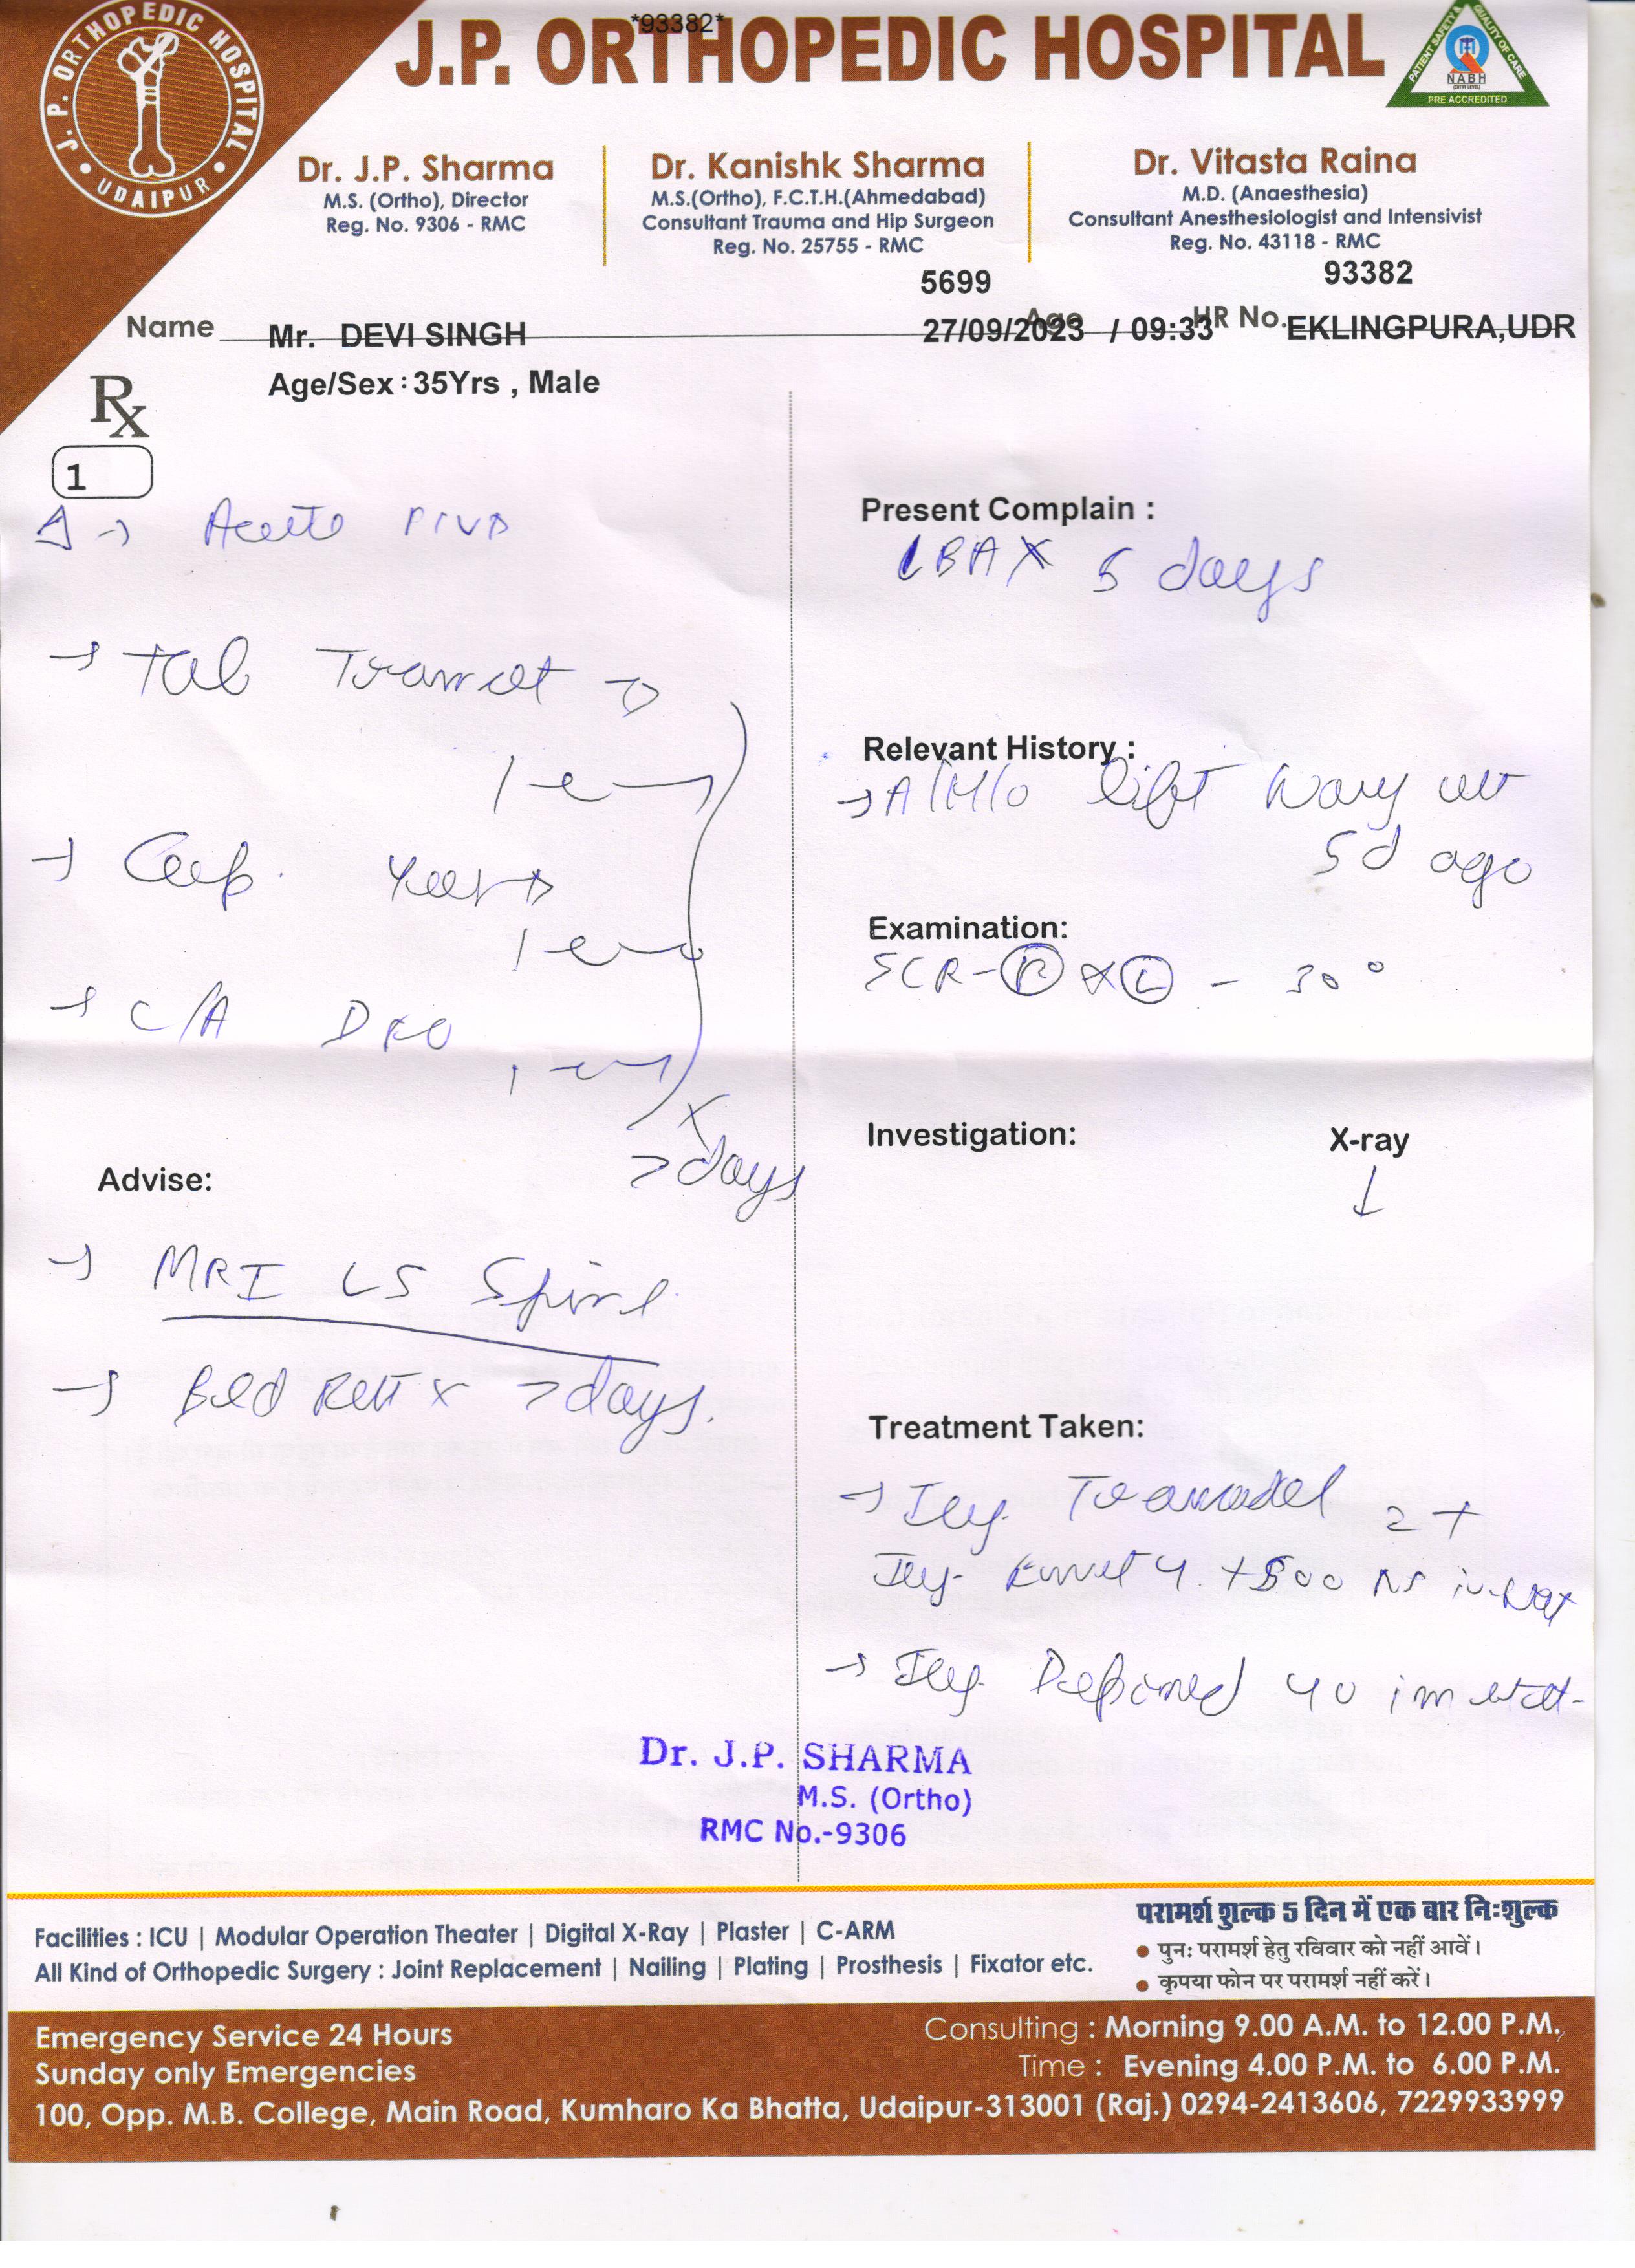 *93382*
J.P. ORTHOPEDIC HOSPITAL
J. P. ORTHOPEDIC HOSPITAL
UDAIPUR
PATIENT SAFETY & QUALITY OF CARE
NABH
(ENTRY LEVEL)
PRE ACCREDITED
Dr. J.P. Sharma
M.S. (Ortho), Director
Reg. No. 9306 - RMC
Dr. Kanishk Sharma
M.S.(Ortho), F.C.T.H.(Ahmedabad)
Consultant Trauma and Hip Surgeon
Reg. No. 25755 - RMC
Dr. Vitasta Raina
M.D. (Anaesthesia)
Consultant Anesthesiologist and Intensivist
Reg. No. 43118 - RMC
5699 93382
Name Mr. DEVI SINGH Age 27/09/2023 / 09:33 HR No. EKLINGPURA,UDR
Age/Sex : 35Yrs , Male
Rx
1
Δ → Acute PIVD
→ Tab
→ Cap.
→ C/A
x 7 days
Advise:
→ MRI LS Spine
→ Bed Rest x 7 days.
Present Complain :
LBA x 5 days
Relevant History :
→ A/H/o lift heavy wt
5d ago
Examination:
SLR - R & L - 30°
Investigation: X-ray
↓
Treatment Taken:
→ Inj. Tramadol 2 +
Inj. Emset 4 + 500 NS
→ Inj. 40 im stat
Dr. J.P. SHARMA
M.S. (Ortho)
RMC No.-9306
Facilities : ICU | Modular Operation Theater | Digital X-Ray | Plaster | C-ARM
All Kind of Orthopedic Surgery : Joint Replacement | Nailing | Plating | Prosthesis | Fixator etc.
परामर्श शुल्क 5 दिन में एक बार निःशुल्क
● पुनः परामर्श हेतु रविवार को नहीं आवें।
● कृपया फोन पर परामर्श नहीं करें।
Emergency Service 24 Hours
Sunday only Emergencies
Consulting : Morning 9.00 A.M. to 12.00 P.M.,
Time : Evening 4.00 P.M. to 6.00 P.M.
100, Opp. M.B. College, Main Road, Kumharo Ka Bhatta, Udaipur-313001 (Raj.) 0294-2413606, 7229933999